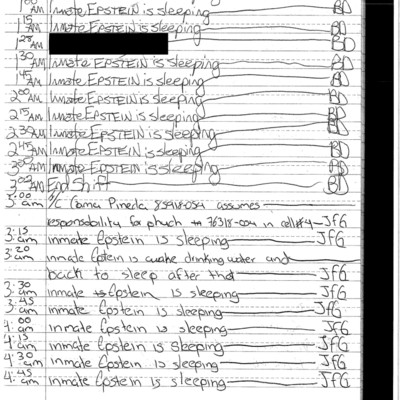 1:00 AM Inmate EPSTEIN is sleeping BD
1:15 AM Inmate EPSTEIN is sleeping BD
1:28 AM BD
1:30 AM Inmate EPSTEIN is sleeping BD
1:45 AM Inmate EPSTEIN is sleeping BD
2:00 AM Inmate EPSTEIN is sleeping BD
2:15 AM Inmate EPSTEIN is sleeping BD
2:30 AM Inmate EPSTEIN is sleeping BD
2:45 AM Inmate EPSTEIN is sleeping BD
3:00 AM Inmate EPSTEIN is sleeping BD
3:02 AM End Shift BD
3:00 am I/C Coma Pineda 85918-054 assumes
responsability for 76318-054 in cell #4 JfG
3:15 am inmate Epstein is sleeping JfG
3:20 am inmate Epstein is awake drinking water and
back to sleep after that JfG
3:30 am inmate Epstein is sleeping JfG
3:45 am inmate Epstein is sleeping JfG
4:00 am inmate Epstein is sleeping JfG
4:15 am inmate Epstein is sleeping JfG
4:30 am inmate Epstein is sleeping JfG
4:45 am inmate Epstein is sleeping JfG